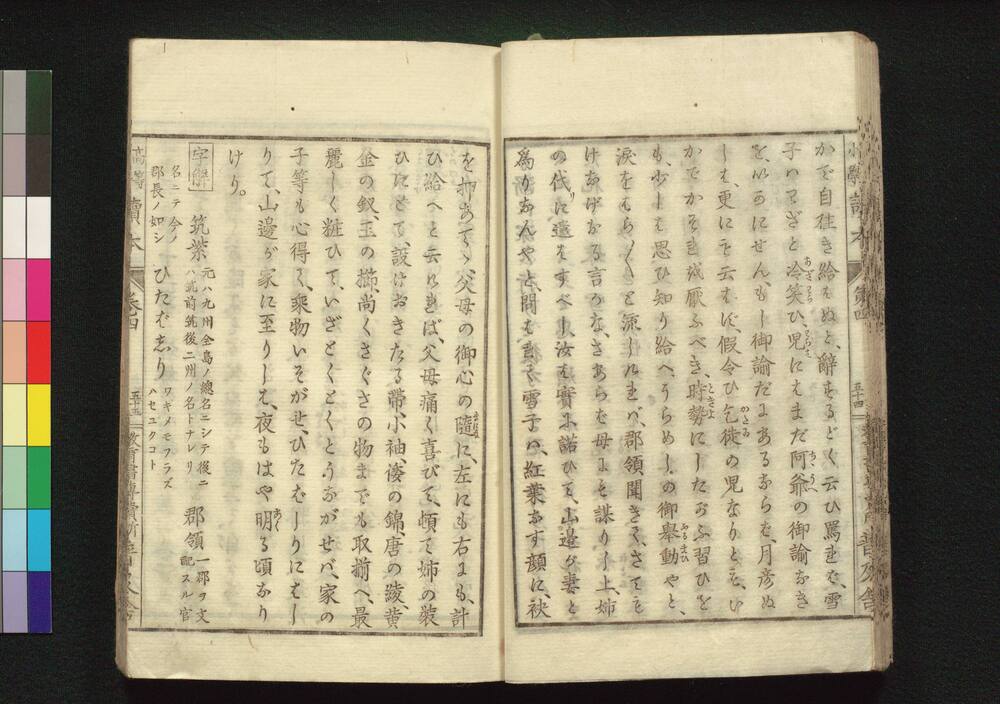 かで自徃き給はぬと、辭するどく云ひ罵れば、雪
子ハわざと冷笑ひ、児にはまだ阿爺の御諭なき
を、いかにせん、もし御諭だにあるならば、月彦ぬ
しは、更にも云はず、假令ひ乞徙の児なりとも、い
かでかそを厭ふべき、時勢にしたがふ習ひを
も、少しは思ひ知り給へ、うらめしの御舉動やと、
涙をはら〳〵と流しければ、郡領聞きて、さては
けなげなる言かな、さあらば母にも謀りし上、姉
の代りに遣はすべし、汝は實に諾ひて、山邊が妻と
爲りなんやと問はれて、雪子ハ、紅葉なす顔に、袂
を押あてゝ、父母の御心の隨に、左にも右にも、計
ひ給へと云ければ、父母痛く喜びて、頓て姉の装
ひにとて、設けおきたる帶、小袖、倭の錦、唐の綾、黄
金の釵、玉の櫛、尚くさ〴〵の物までも取揃へ、最
麗しく粧ひて、いざとく〳〵とうながせば、家の
子等も心得て、乘物いそがせ、ひたはしりにはし
りて、山邊が家に至りしは、夜もはや明る頃なり
けり。
字解 筑紫 元ハ九州全島ノ總名ニシテ後ニハ筑前筑後二州ノ名トナレリ 郡領 一郡ヲ文配スル官
名ニテ今ノ郡長ノ如シ ひたはしり ワキメモフラズハセユクコト
小學讀本 第四 五十四 普及舍
高等讀本 卷四 五十五